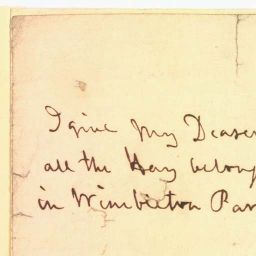 I give my Deares
all the Hay belong
in Wimbleton Par